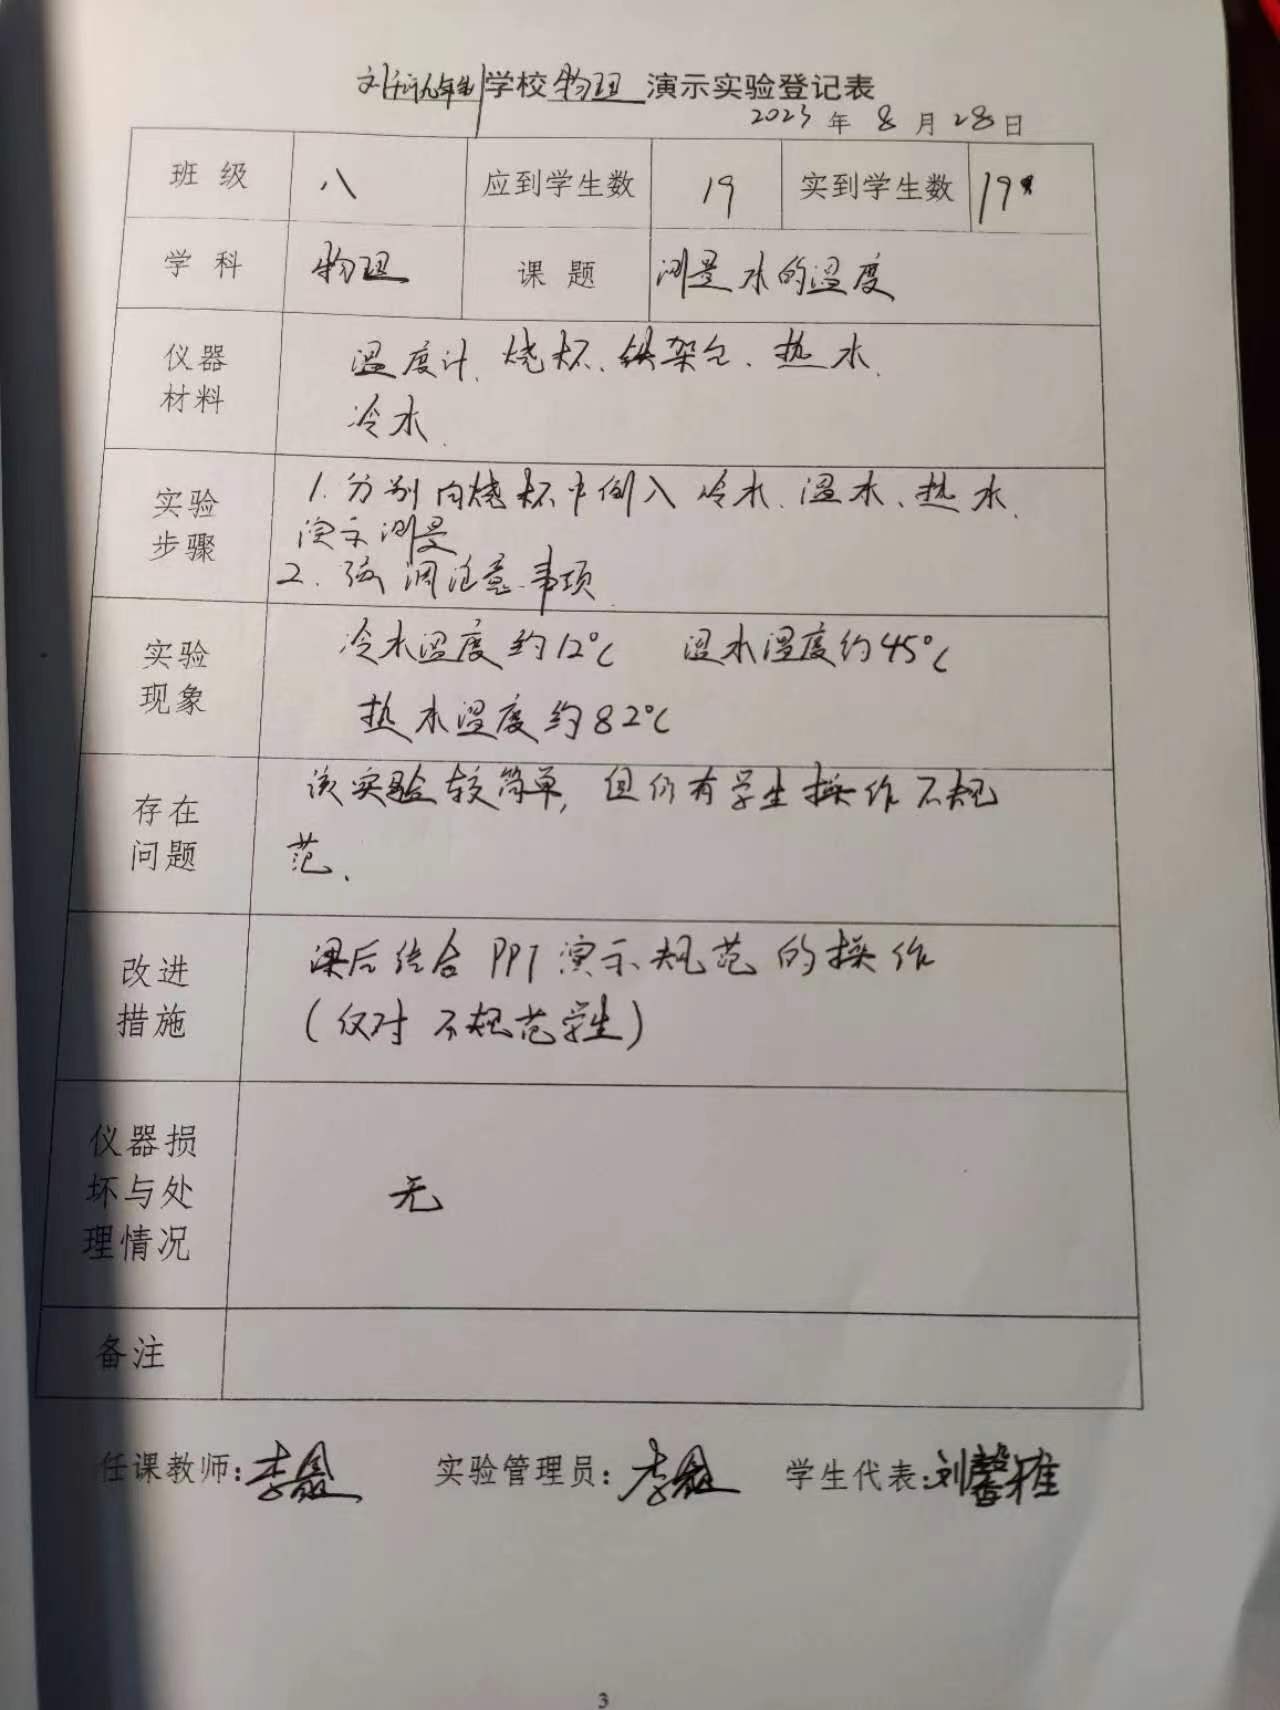 学校 物理 演示实验登记表
2023 年 8 月 28 日
班 级 八 应到学生数 19 实到学生数 19
学 科 物理 课 题 测量水的温度
仪器
材料
温度计、烧杯、铁架台、热水、
冷水、
实验
步骤
1. 分别向烧杯中倒入冷水、温水、热水、
演示测量
2. 强调注意事项
实验
现象
冷水温度约12℃ 温水温度约45℃
热水温度约82℃
存在
问题
该实验较简单，但仍有学生操作不规
范、
改进
措施
课后结合 PPT 演示规范的操作
（仅对不规范学生）
仪器损
坏与处
理情况
无
备注
任课教师：李 实验管理员：李 学生代表：刘馨雅
3